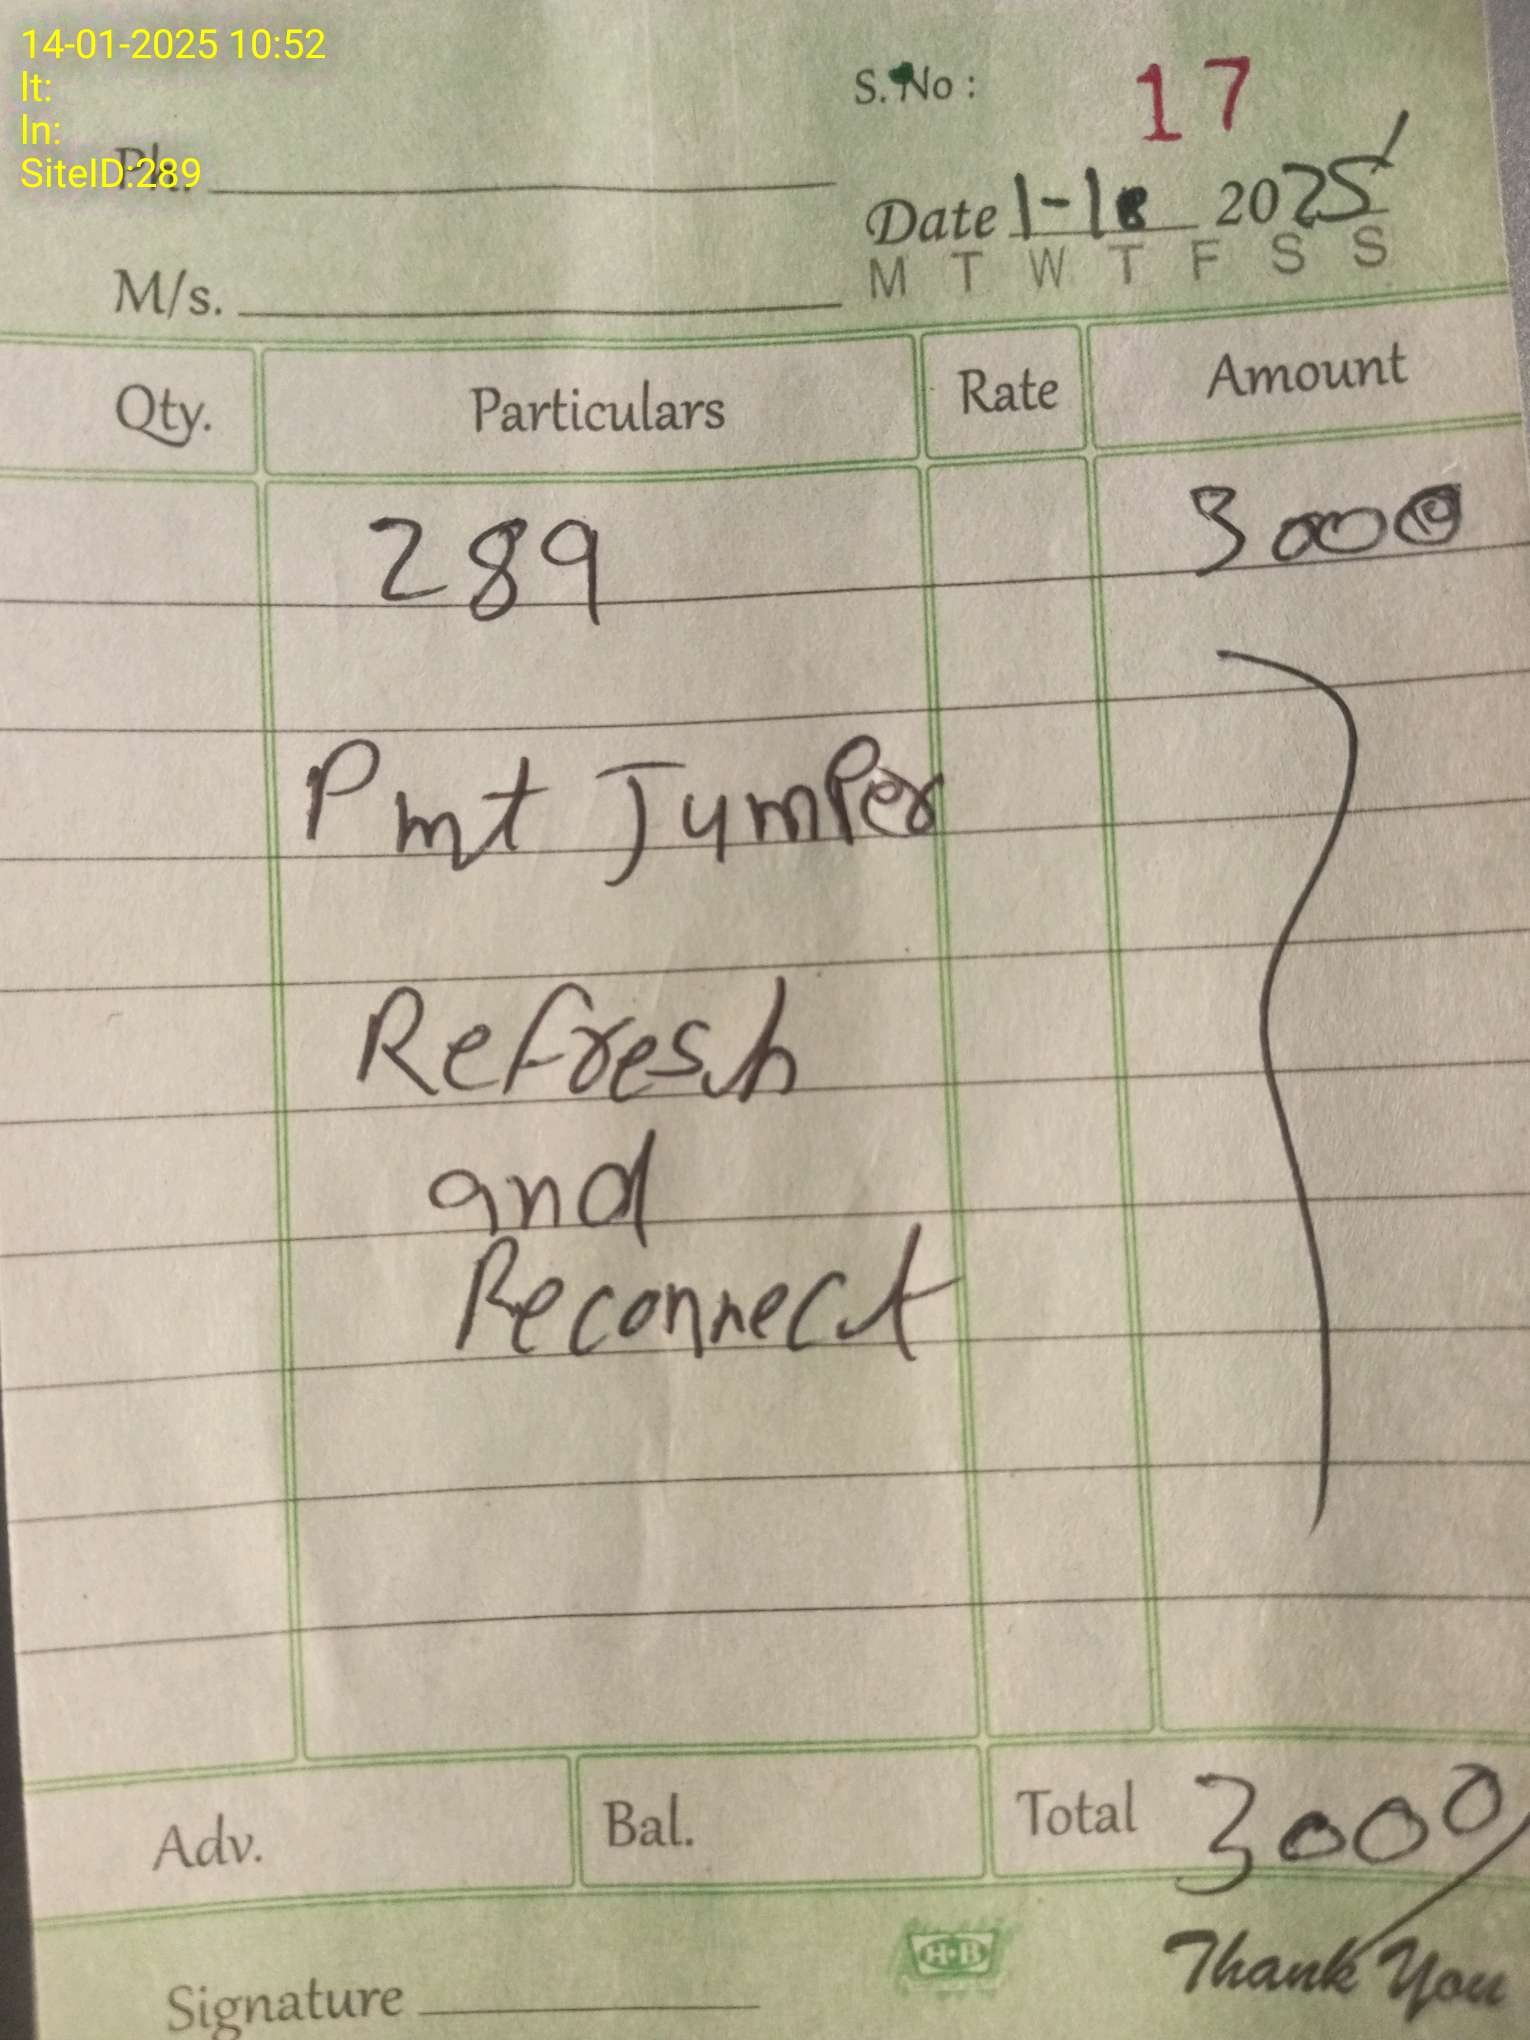 14-01-2025 10:52
lt:
ln:
SiteID:289
S. No : 17
Date 1-1 2025
M/s.
M T W T F S S
Qty. Particulars Rate Amount
289 3000
Pmt Jumper
Refresh
and
Reconnect
Adv. Bal. Total 3000/
H·B
Thank You
Signature